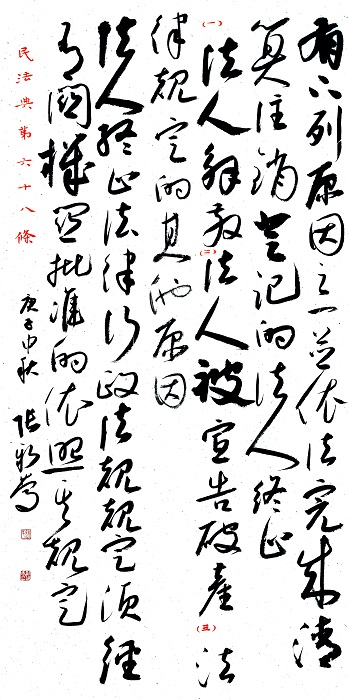 有下列原因之一並依法完成清
算注銷登记的法人终止
(一)法人解散(二)法人被宣告破產(三)法
律規定的其他原因
法人终止法律行政法規規定須經
有關機關批准的依照其規定
民法典第六十八條
庚子中秋